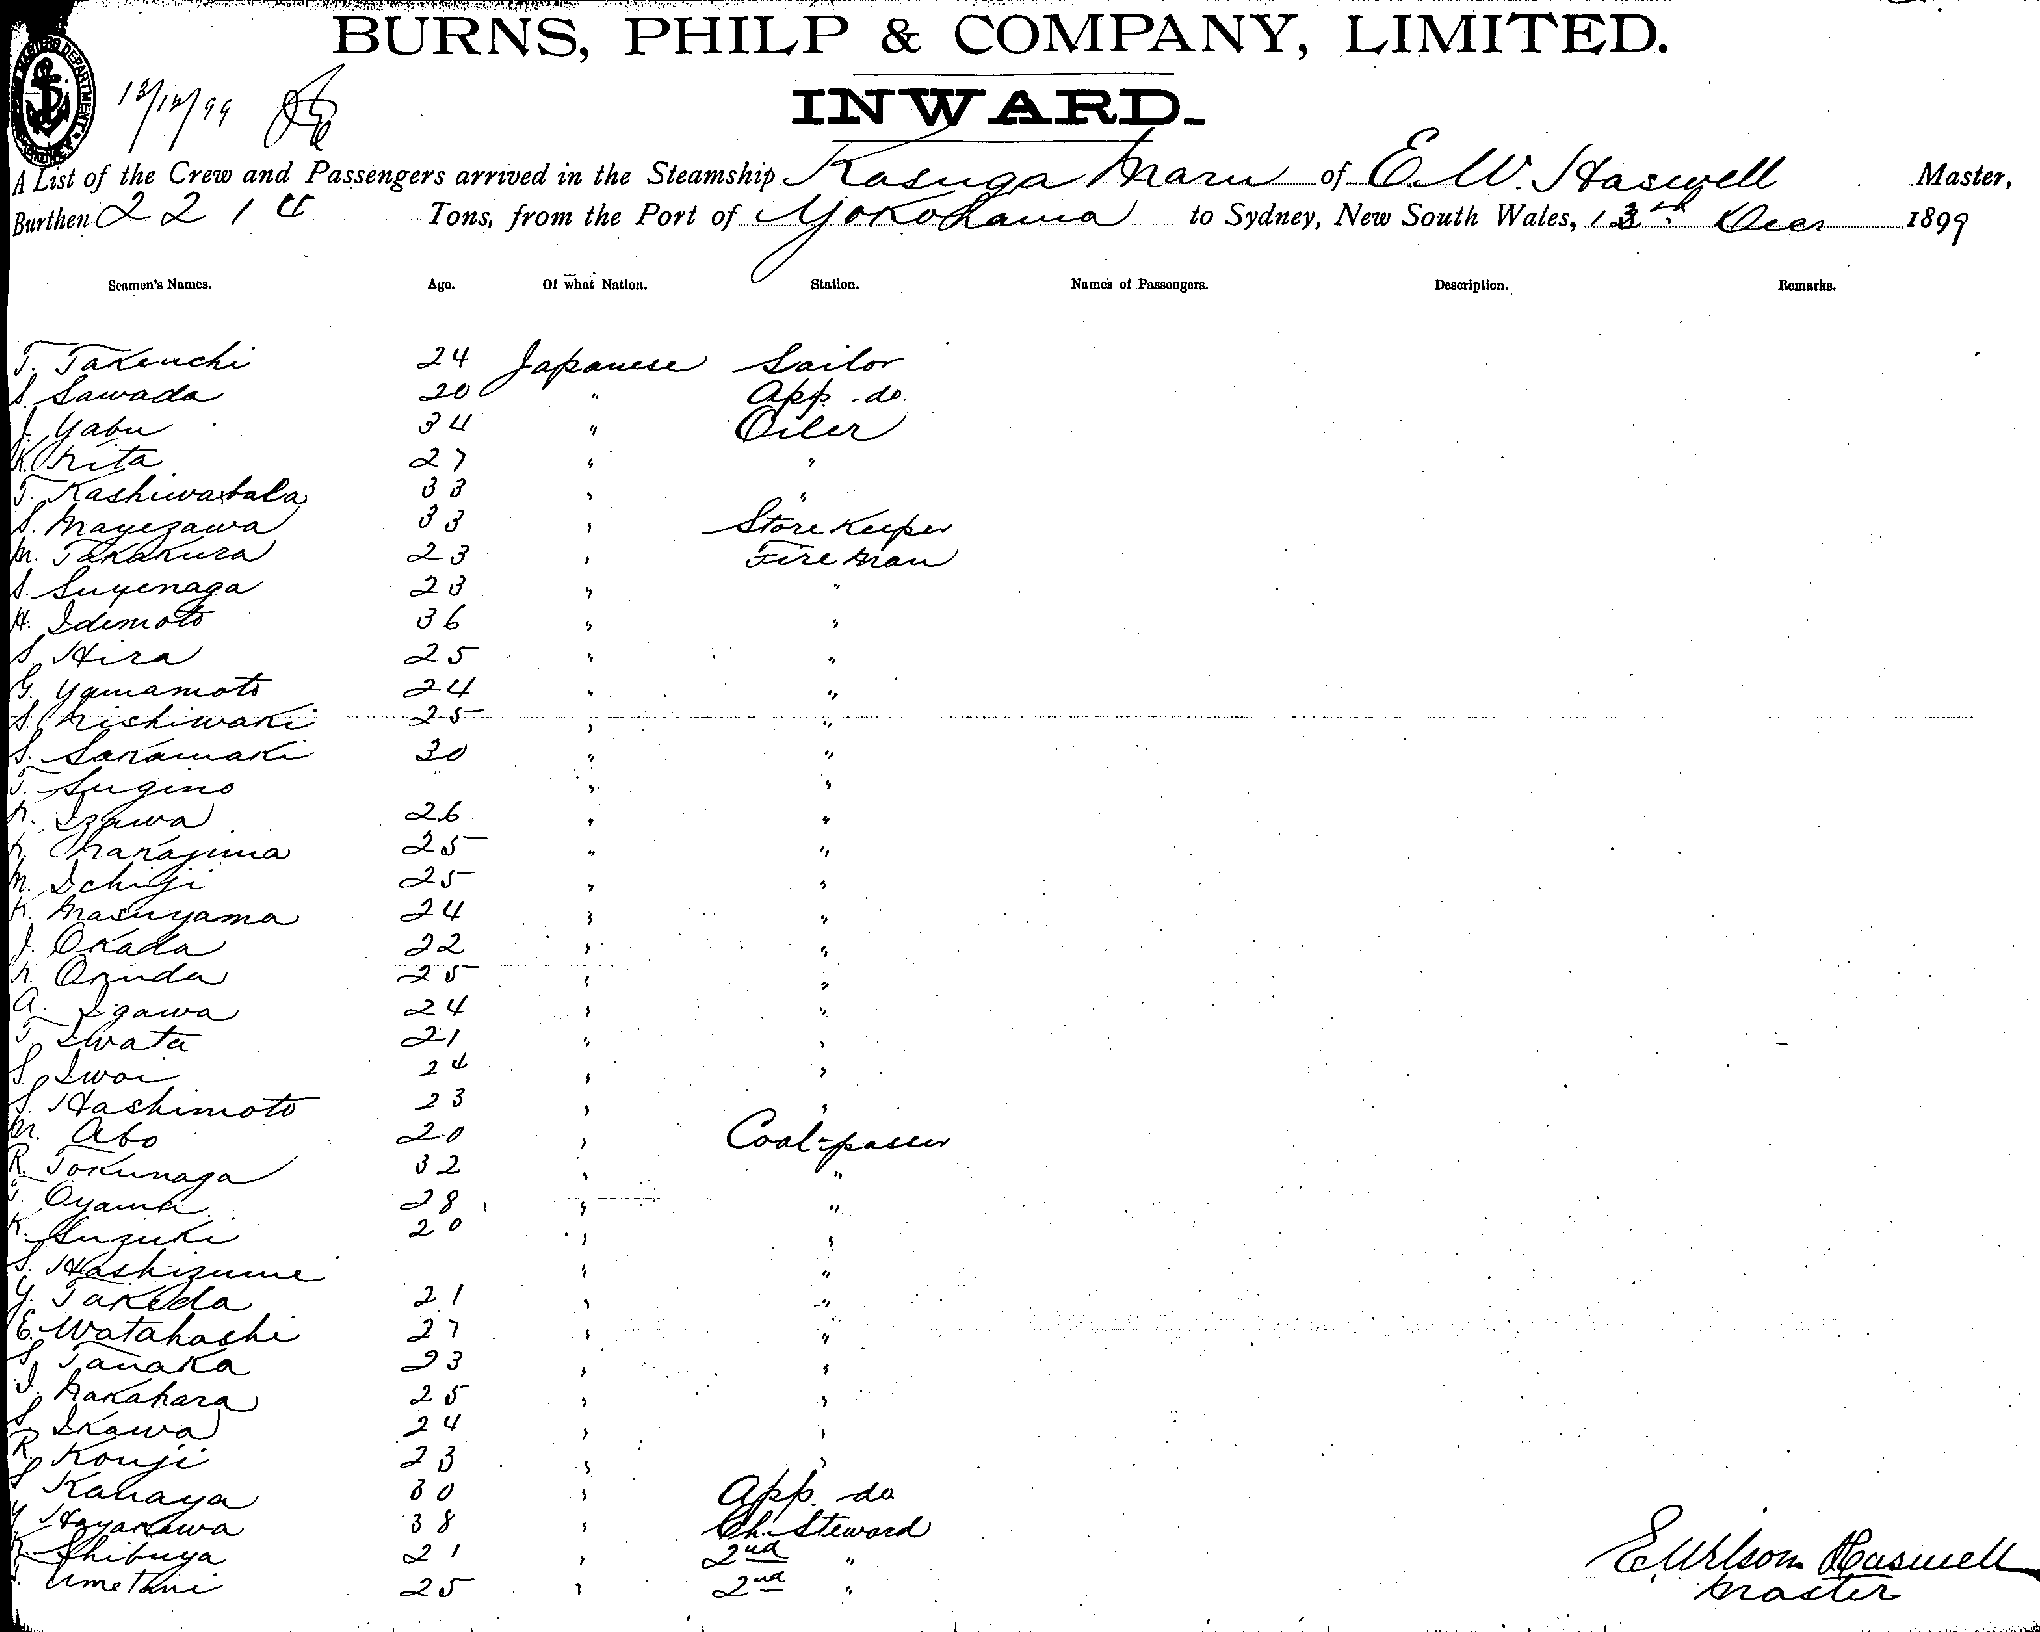 BURNS, PHILP & COMPANY, LIMITED.
13/12/99
INWARD.
A List of the Crew and Passengers arrived in the Steamship Kasuga Maru of E. W. Haswell Master,
Burthen 2214 Tons, from the Port of Yokohama to Sydney, New South Wales, 13th Decr 1899
Seamen's Names. Age. Of what Nation. Station. Names of Passengers. Description. Remarks.
T. Takeuchi 24 Japanese Sailor
S. Sawada 20 " App. do.
J. Yabu 34 " Oiler
K. Kita 27 " "
T. Kashiwabala 33 " "
S. Mayezawa 33 " Store Keeper
M. Takakura 23 " Fireman
S. Suyenaga 23 " "
H. Idemoto 36 " "
S. Hira 25 " "
G. Yamamoto 24 " "
S. Nishiwaki 25 " "
S. Sakamaki 30 " "
T. Sugino " "
K. Izawa 26 " "
K. Nakajima 25 " "
M. Ichiji 25 " "
K. Masuyama 24 " "
J. Okada 22 " "
K. Okuda 25 " "
A. Igawa 24 " "
T. Iwata 21 " "
S. Iwai 24 " "
S. Hashimoto 23 " "
M. Abo 20 " Coal-passer
R. Tokunaga 32 " "
Oyama 28 " "
K. Suzuki 20 " "
S. Hashizume " "
Y. Takeda 21 " "
E. Watahashi 27 " "
S. Tanaka 23 " "
J. Nakahara 25 " "
S. Ikawa 24 " "
R. Kouji 23 " "
S. Kanaya 30 " App. do
Y. Hayakawa 38 " Ch. Steward
Shibuya 21 " 2nd "
Umetani 25 " 2nd "
E. Wilson Haswell
Master